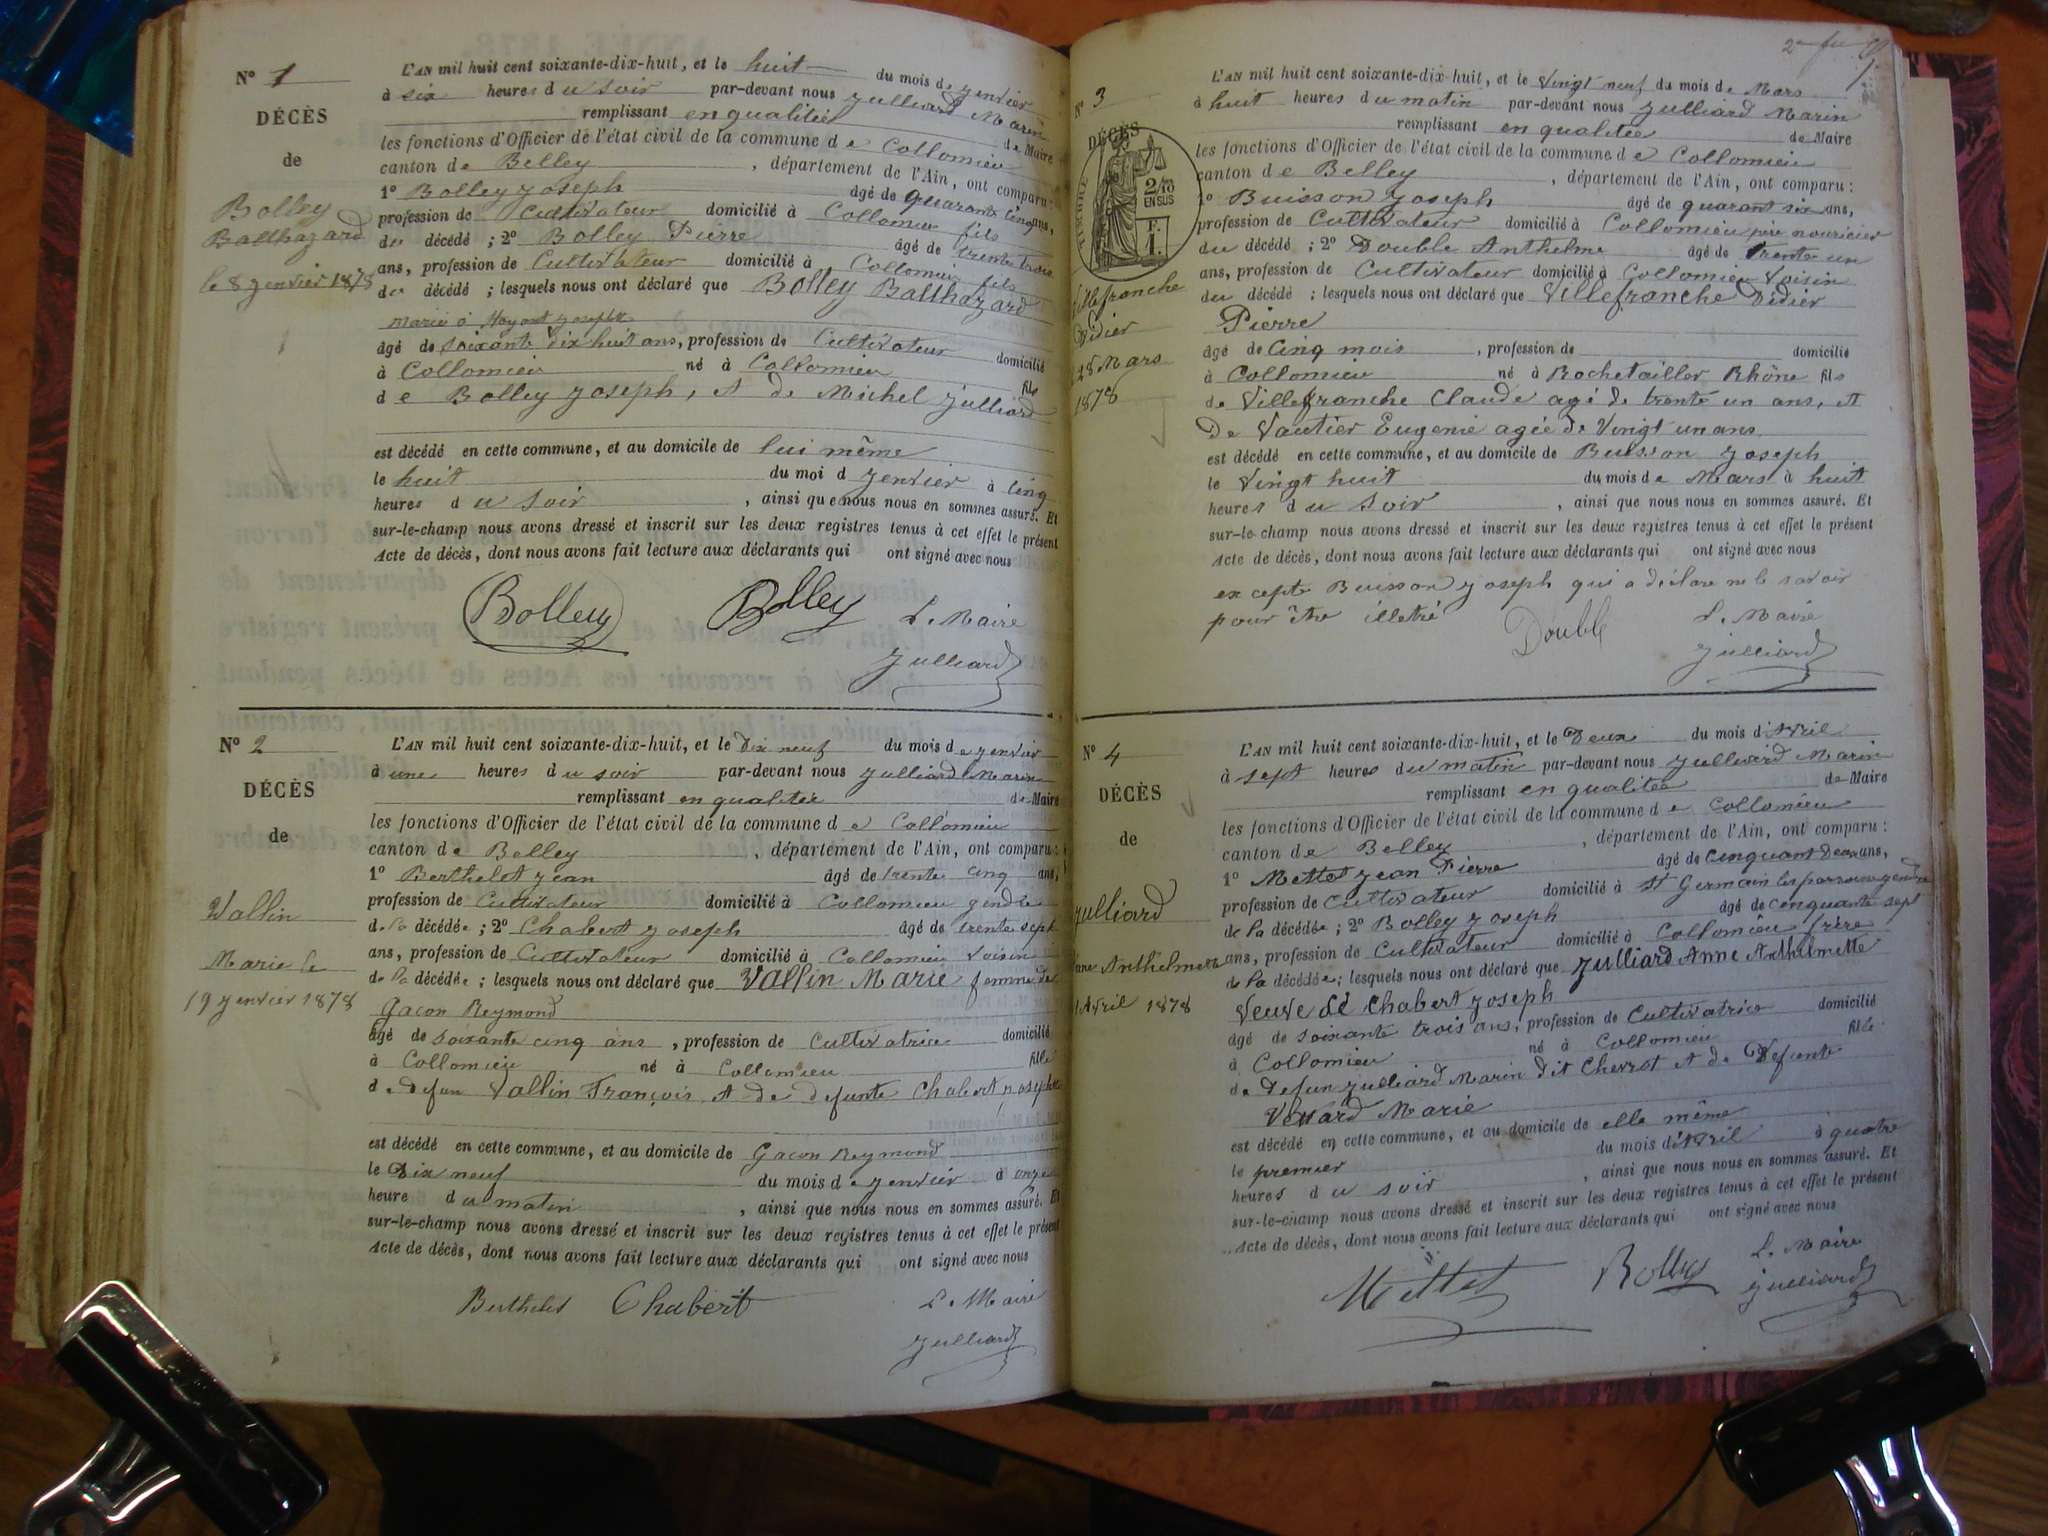 N° 1
DÉCÈS
de
Bolley
Balthazard
le 8 jenvier 1878
L'AN mil huit cent soixante-dix-huit, et le huit du mois de jenvier
à six heures du soir par-devant nous Julliard Marin
remplissant en qualitée de Maire
les fonctions d'Officier de l'état civil de la commune de Collomieu
canton de Belley, département de l'Ain, ont comparu :
1° Bolley Joseph âgé de quarante cinq ans,
profession de Cultivateur domicilié à Collomieu fils
du décédé ; 2° Bolley Pierre âgé de trente trois
ans, profession de Cultivateur domicilié à Collomieu fils
du décédé ; lesquels nous ont déclaré que Bolley Balthazard
marié à Josephte
âgé de soixante dix huit ans, profession de Cultivateur domicilié
à Collomieu né à Collomieu fils
de Bolley Joseph, et de Michel Julliard
est décédé en cette commune, et au domicile de lui même
le huit du moi d jenvier à cinq
heures du soir, ainsi que nous nous en sommes assuré. Et
sur-le-champ nous avons dressé et inscrit sur les deux registres tenus à cet effet le présent
Acte de décès, dont nous avons fait lecture aux déclarants qui ont signé avec nous
Bolley Bolley L. Maire
Julliard
N° 2
DÉCÈS
de
Vallin
Marie le
19 jenvier 1878
L'AN mil huit cent soixante-dix-huit, et le Dix neuf du mois de jenvier
à une heures du soir par-devant nous Julliard Marin
remplissant en qualitée de Maire
les fonctions d'Officier de l'état civil de la commune de Collomieu
canton de Belley, département de l'Ain, ont comparu :
1° Berthelot Jean âgé de trente cinq ans,
profession de Cultivateur domicilié à Collomieu gendre
de la décédée ; 2° Chabert Joseph âgé de trente sept
ans, profession de Cultivateur domicilié à Collomieu Voisin
de la décédée ; lesquels nous ont déclaré que Vallin Marie femme de
Gacon Reymond
âgé de soixante cinq ans, profession de Cultivatrice domicilié
à Collomieu né à Collomieu fille
de defun Vallin François et de defunte Chabert Josephte
est décédé en cette commune, et au domicile de Gacon Reymond
le Dix neuf du mois de jenvier à onze
heure du matin, ainsi que nous nous en sommes assuré. Et
sur-le-champ nous avons dressé et inscrit sur les deux registres tenus à cet effet le présent
Acte de décès, dont nous avons fait lecture aux déclarants qui ont signé avec nous
Berthelot Chabert L. Maire
Julliard
2me
N° 3
DÉCÈS
TIMBRE
2/10 EN SUS
F. 1.
Villefranche
Didier
28 Mars
1878
L'AN mil huit cent soixante-dix-huit, et le Vingt neuf du mois de Mars
à huit heures du matin par-devant nous Julliard Marin
remplissant en qualitée de Maire
les fonctions d'Officier de l'état civil de la commune de Collomieu
canton de Belley, département de l'Ain, ont comparu :
1° Buisson Joseph âgé de quarant six ans,
profession de Cultivateur domicilié à Collomieu père nouricier
du décédé ; 2° Double Anthelme âgé de trente un
ans, profession de Cultivateur domicilié à Collomieu Voisin
du décédé ; lesquels nous ont déclaré que Villefranche Didier
Pierre
âgé de Cinq mois, profession de domicilié
à Collomieu né à Rochetailler Rhône fils
de Villefranche Claude agé de trente un ans, et
De Vautier Eugenie agée de Vingt un ans
est décédé en cette commune, et au domicile de Buisson Joseph
le Vingt huit du mois de Mars à huit
heures du soir, ainsi que nous nous en sommes assuré. Et
sur-le-champ nous avons dressé et inscrit sur les deux registres tenus à cet effet le présent
Acte de décès, dont nous avons fait lecture aux déclarants qui ont signé avec nous
excepté Buisson Joseph qui a déclaré ne le savoir
pour être illetré Double L. Maire
Julliard
N° 4
DÉCÈS
de
Julliard
Anne Anthelmette
1 Avril 1878
L'AN mil huit cent soixante-dix-huit, et le Deux du mois d'Avril
à sept heures du matin par-devant nous Julliard Marin
remplissant en qualitée de Maire
les fonctions d'Officier de l'état civil de la commune de Collomieu
canton de Belley, département de l'Ain, ont comparu :
1° Mettet Jean Pierre âgé de Cinquant Deux ans,
profession de Cultivateur domicilié à St Germain les parroisse gendre
de la décédée ; 2° Bolley Joseph âgé de Cinquante sept
ans, profession de Cultivateur domicilié à Collomieu frère
de la décédée ; lesquels nous ont déclaré que Julliard Anne Anthelmette
Veuve de Chabert Joseph
âgé de soixante trois ans, profession de Cultivatrice domicilié
à Collomieu né à Collomieu fille
de Defun Julliard Marin dit Cherrot et de Defunte
Marie
est décédé en cette commune, et au domicile de elle même
le premier du mois d'Avril à quatre
heures du soir, ainsi que nous nous en sommes assuré. Et
sur-le-champ nous avons dressé et inscrit sur les deux registres tenus à cet effet le présent
Acte de décès, dont nous avons fait lecture aux déclarants qui ont signé avec nous
Mettet Bolley L. Maire
Julliard